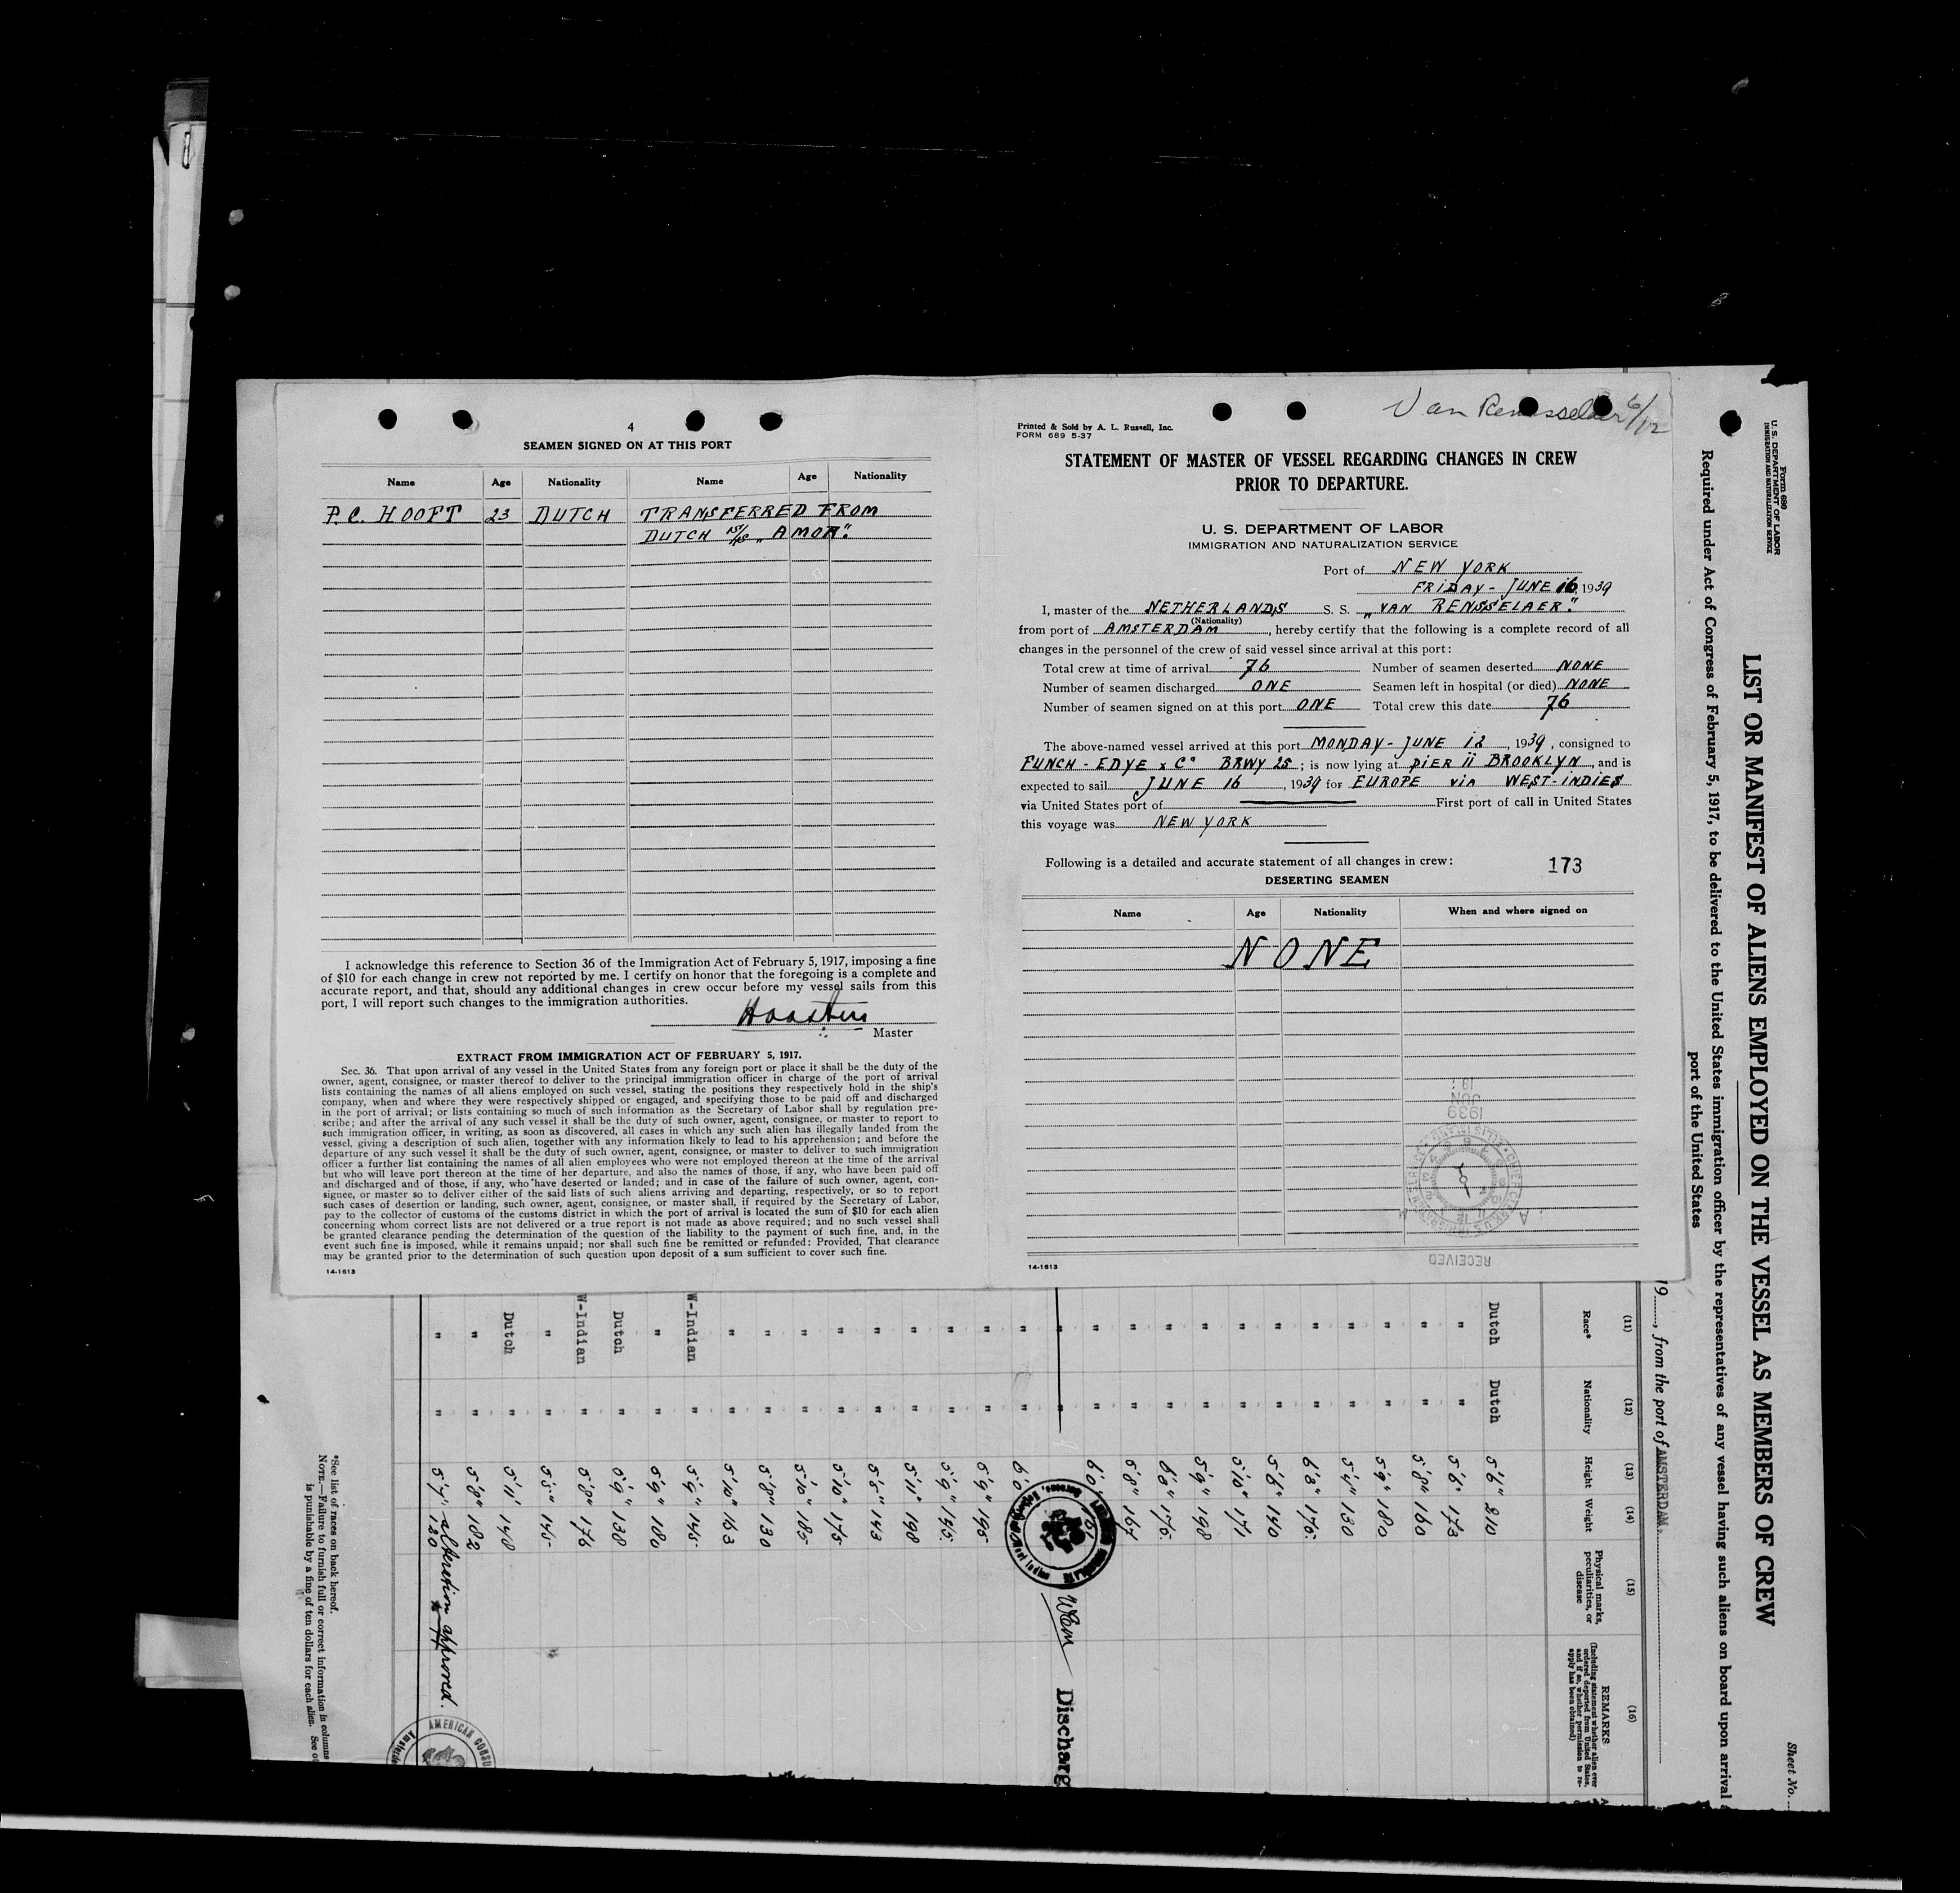 4
SEAMEN SIGNED ON AT THIS PORT
Name Age Nationality Name Age Nationality
P.C. HOOFT 23 DUTCH TRANSFERRED FROM
DUTCH S/S „AMOR".
I acknowledge this reference to Section 36 of the Immigration Act of February 5, 1917, imposing a fine
of $10 for each change in crew not reported by me. I certify on honor that the foregoing is a complete and
accurate report, and that, should any additional changes in crew occur before my vessel sails from this
port, I will report such changes to the immigration authorities.
Master
EXTRACT FROM IMMIGRATION ACT OF FEBRUARY 5, 1917.
Sec. 36. That upon arrival of any vessel in the United States from any foreign port or place it shall be the duty of the
owner, agent, consignee, or master thereof to deliver to the principal immigration officer in charge of the port of arrival
lists containing the names of all aliens employed on such vessel, stating the positions they respectively hold in the ship's
company, when and where they were respectively shipped or engaged, and specifying those to be paid off and discharged
in the port of arrival; or lists containing so much of such information as the Secretary of Labor shall by regulation pre-
scribe; and after the arrival of any such vessel it shall be the duty of such owner, agent, consignee, or master to report to
such immigration officer, in writing, as soon as discovered, all cases in which any such alien has illegally landed from the
vessel, giving a description of such alien, together with any information likely to lead to his apprehension; and before the
departure of any such vessel it shall be the duty of such owner, agent, consignee, or master to deliver to such immigration
officer a further list containing the names of all alien employees who were not employed thereon at the time of the arrival
but who will leave port thereon at the time of her departure, and also the names of those, if any, who have been paid off
and discharged and of those, if any, who have deserted or landed; and in case of the failure of such owner, agent, con-
signee, or master so to deliver either of the said lists of such aliens arriving and departing, respectively, or so to report
such cases of desertion or landing, such owner, agent, consignee, or master shall, if required by the Secretary of Labor,
pay to the collector of customs of the customs district in which the port of arrival is located the sum of $10 for each alien
concerning whom correct lists are not delivered or a true report is not made as above required; and no such vessel shall
be granted clearance pending the determination of the question of the liability to the payment of such fine, and, in the
event such fine is imposed, while it remains unpaid; nor shall such fine be remitted or refunded: Provided, That clearance
may be granted prior to the determination of such question upon deposit of a sum sufficient to cover such fine.
14-1613
Van Rensselaer 6/12
Printed & Sold by A. L. Russell, Inc.
FORM 689 5-37
STATEMENT OF MASTER OF VESSEL REGARDING CHANGES IN CREW
PRIOR TO DEPARTURE.
U. S. DEPARTMENT OF LABOR
IMMIGRATION AND NATURALIZATION SERVICE
Port of NEW YORK
FRIDAY - JUNE 16, 1939
I, master of the NETHERLANDS S. S. „VAN RENSSELAER".
(Nationality)
from port of AMSTERDAM, hereby certify that the following is a complete record of all
changes in the personnel of the crew of said vessel since arrival at this port:
Total crew at time of arrival 76 Number of seamen deserted NONE
Number of seamen discharged ONE Seamen left in hospital (or died) NONE
Number of seamen signed on at this port ONE Total crew this date 76
The above-named vessel arrived at this port MONDAY - JUNE 12, 1939, consigned to
FUNCH - EDYE & Co BRWY 25; is now lying at PIER 11 BROOKLYN, and is
expected to sail JUNE 16, 1939 for EUROPE via WEST-INDIES
via United States port of First port of call in United States
this voyage was NEW YORK
Following is a detailed and accurate statement of all changes in crew: 173
DESERTING SEAMEN
Name Age Nationality When and where signed on
NONE
JUN
1939
RECEIVED
14-1613
Form 680
U. S. DEPARTMENT OF LABOR
IMMIGRATION AND NATURALIZATION SERVICE
Sheet No.
LIST OR MANIFEST OF ALIENS EMPLOYED ON THE VESSEL AS MEMBERS OF CREW
Required under Act of Congress of February 5, 1917, to be delivered to the United States immigration officer by the representatives of any vessel having such aliens on board upon arrival
port of the United States
19, from the port of AMSTERDAM.
(11) (12) (13) (14) (15) (16)
Race* Nationality Height Weight Physical marks, peculiarities, or disease REMARKS
(Including statement whether alien ever ordered deported from United States, and if so, whether permission to re-apply has been obtained)
Dutch Dutch 5'6" 210
" " 5'6" 173
" " 5'8" 160
" " 5'9" 180
" " 5'4" 130
" " 6'3" 175
" " 5'6" 140
" " 5'10" 171
" " 5'9" 198
" " 175
" " 5'8" 167
" " 6'0"
" " Discharg
" " 6'0
" " 5'9" 195
" " 5'9" 145
" " 5'11" 198
" " 5'5" 143
" " 5'10" 175
" " 5'10" 185
" " 5'8" 130
" " 5'10" 163
W-Indian " 5'9" 145
" " 5'9" 180
Dutch " 138
W-Indian " 5'8" 176
" " 5'5" 145
Dutch " 5'11" 148
" " 5'8" 182
" " 5'7" 120 alteration approved.
AMERICAN CONSU
*See list of races on back hereof.
NOTE.—Failure to furnish full or correct information in columns
is punishable by a fine of ten dollars for each alien. See